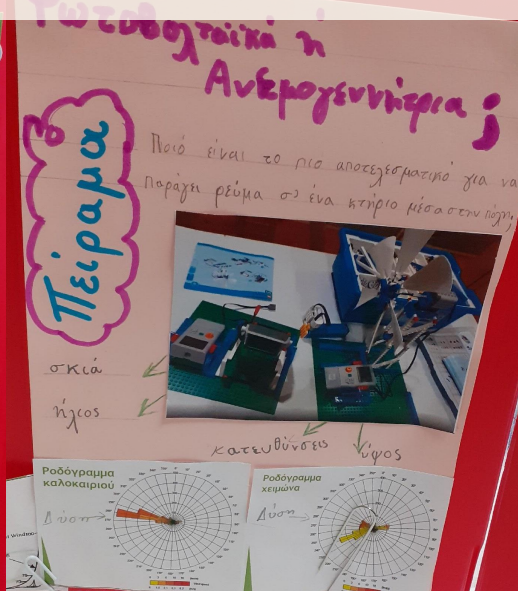 Φωτοβολταϊκά ή
Ανεμογεννήτρια;
Πείραμα
Ποιό είναι το πιο αποτελεσματικό για να
παράγει ρεύμα σ' ένα κτήριο μέσα στην πόλη;
σκιά
ήλιος
κατευθύνσεις
ύψος
Ροδόγραμμα
καλοκαιριού
Δύση
Ροδόγραμμα
χειμώνα
Δύση